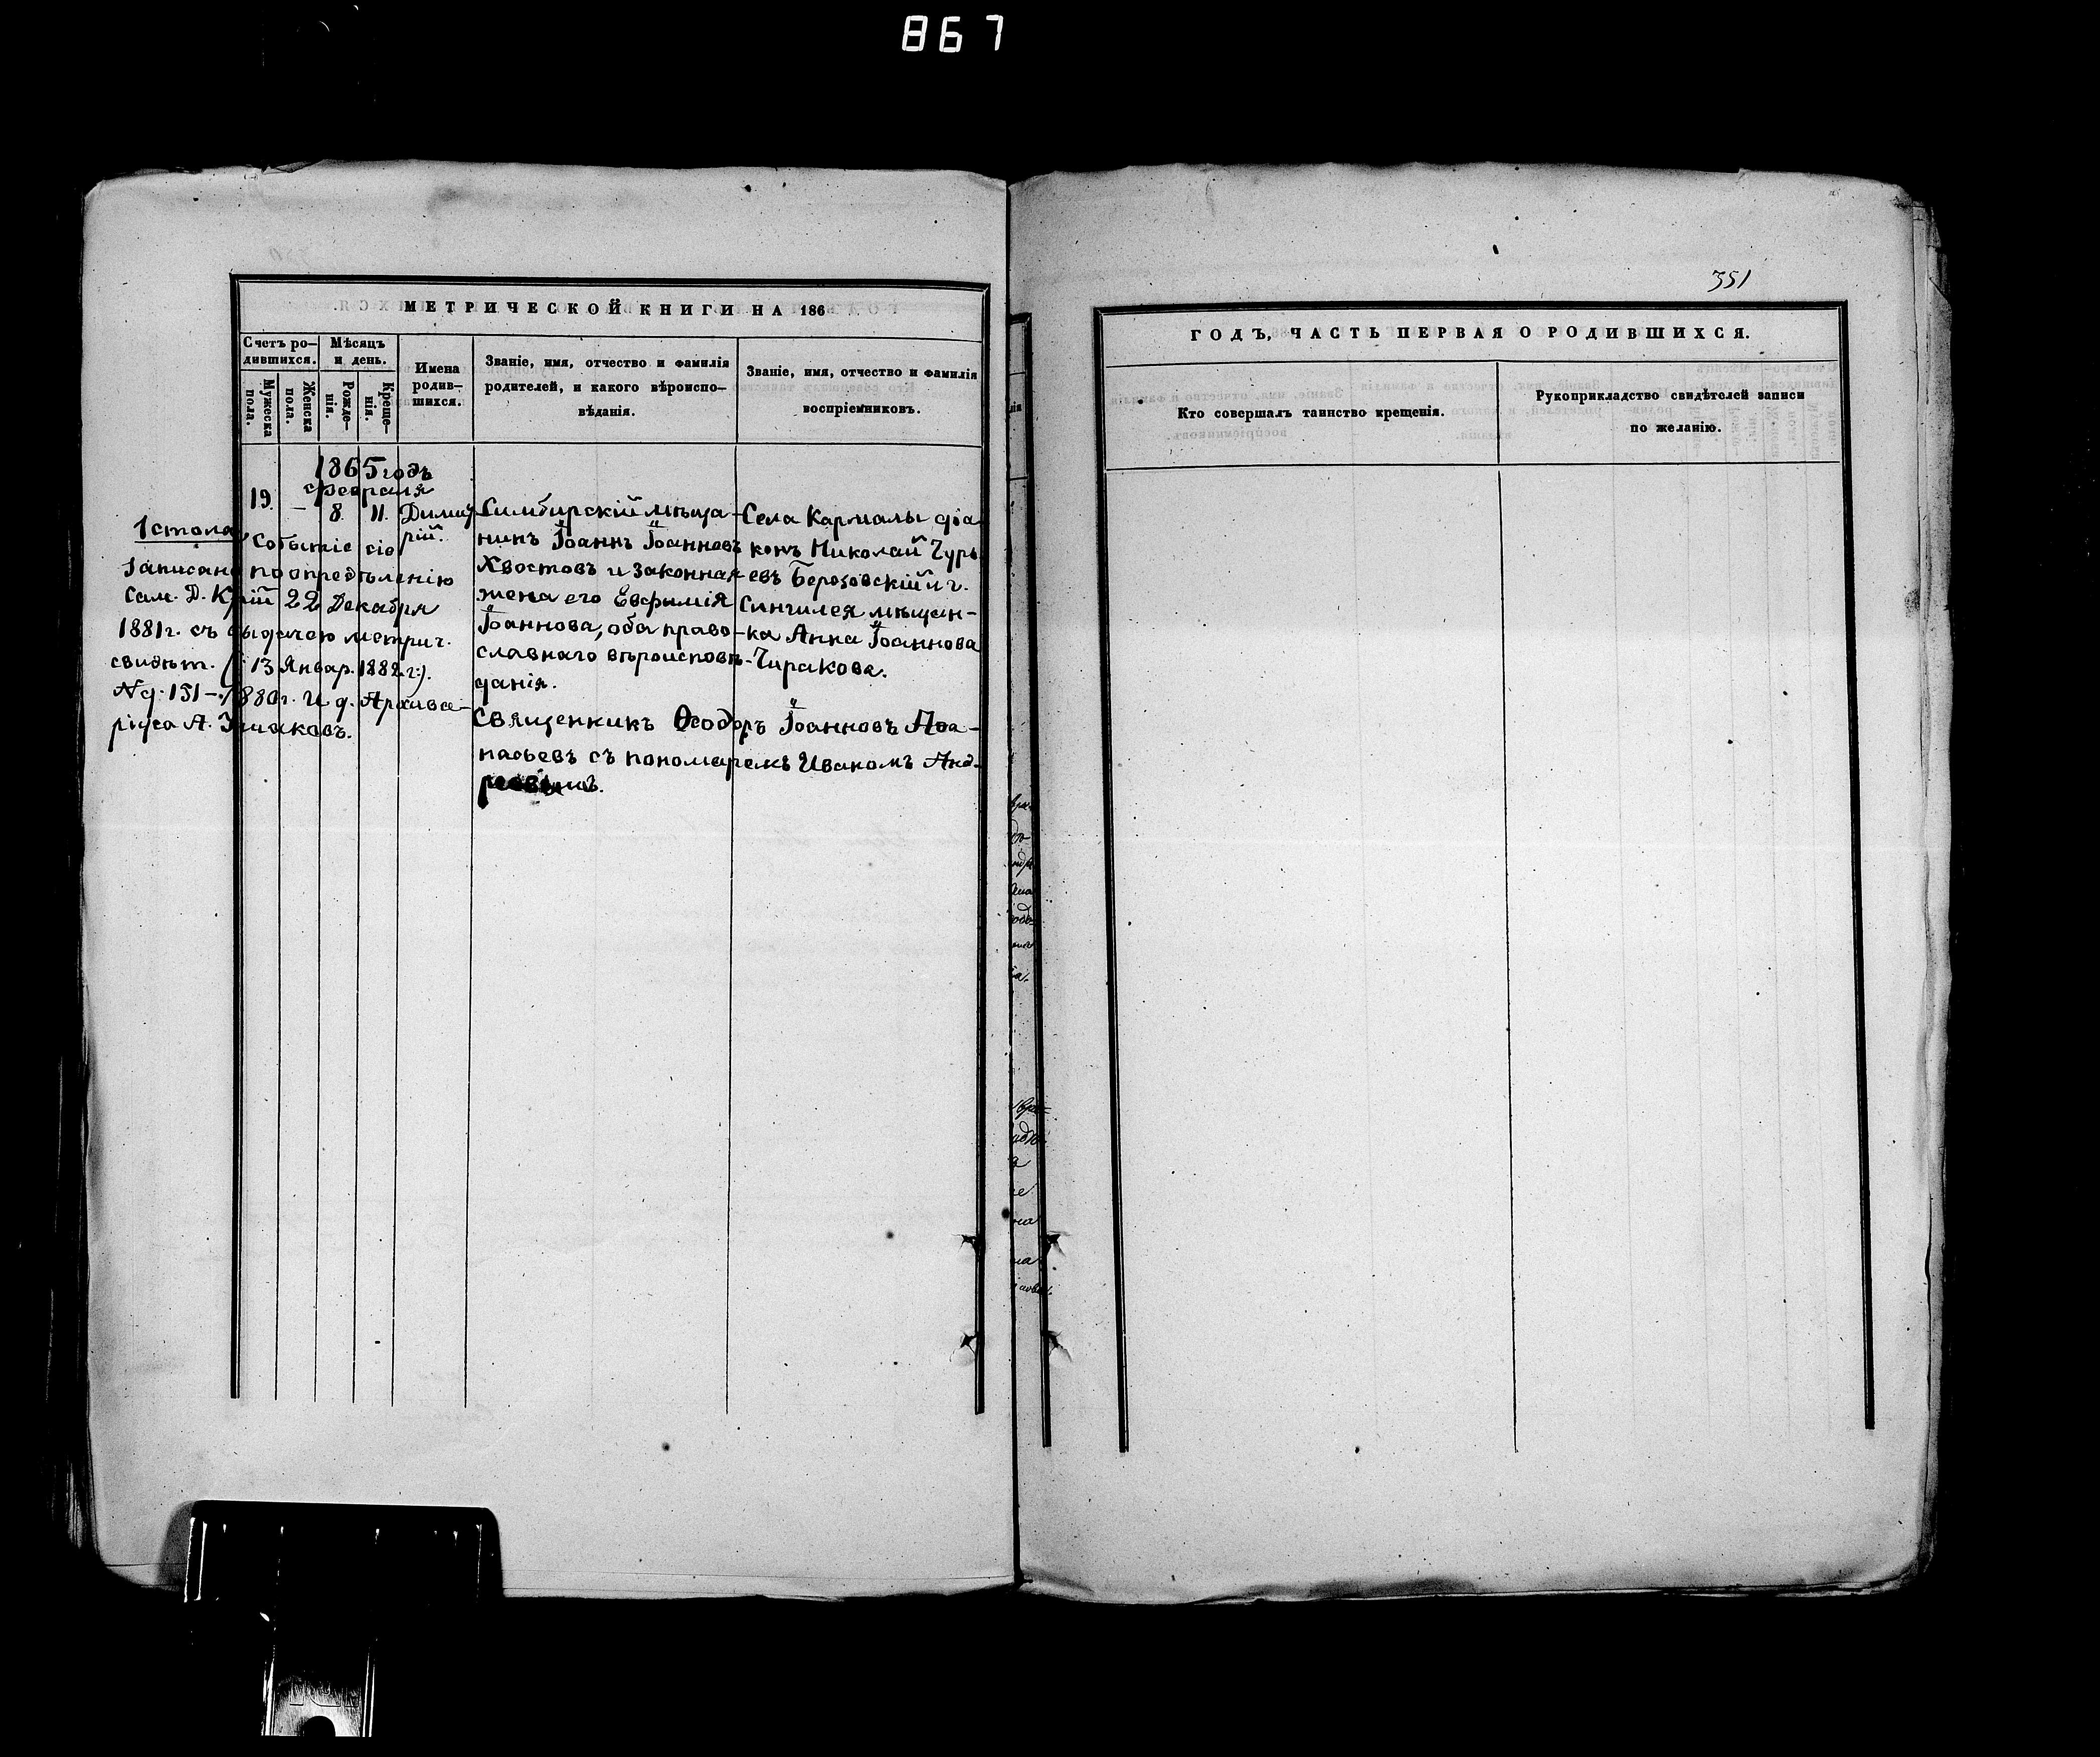 867
МЕТРИЧЕСКОЙ КНИГИ НА 186
Счетъ ро-
дившихся.
Мужеска
пола.
Женска
пола.
Мѣсяцъ
и день.
Рожде-
нія.
Креще-
нія.
Имена
родив-
шихся.
Званіе, имя, отчество и фамилія
родителей, и какого вѣроиспо-
вѣданія.
Званіе, имя, отчество и фамилія
воспріемниковъ.
1865 годъ
Февраля
19. — 8. 11.
Димит
рій.
Симбирскій мѣща-
нинъ Іоаннъ Іоанновъ
Хвостовъ и законная
жена его Евфимія
Іоаннова, оба право-
славнаго вѣроисповѣ-
данія.
Села Кармалы дья
конъ Николай Гурь
евъ Березовскій и г.
Сингилея мѣщан-
ка Анна Іоаннова
Чиракова.
Священникъ Ѳеодоръ Іоанновъ Аѳа-
насьевъ съ пономаремъ Иваномъ Анд-
реевымъ.
1 стола
Событіе сіе
записано по опредѣленію
Сам. Д. К-ріи 22 Декабря
1881 г. съ выдачею метрич.
свидѣт. (: 13 Январ. 1882 г:).
№ д. 151 – 1880 г. И д. Архива-
ріуса А.
351
ГОДЪ, ЧАСТЬ ПЕРВАЯ О РОДИВШИХСЯ.
Кто совершалъ таинство крещенія.
Рукоприкладство свидѣтелей записи
по желанію.